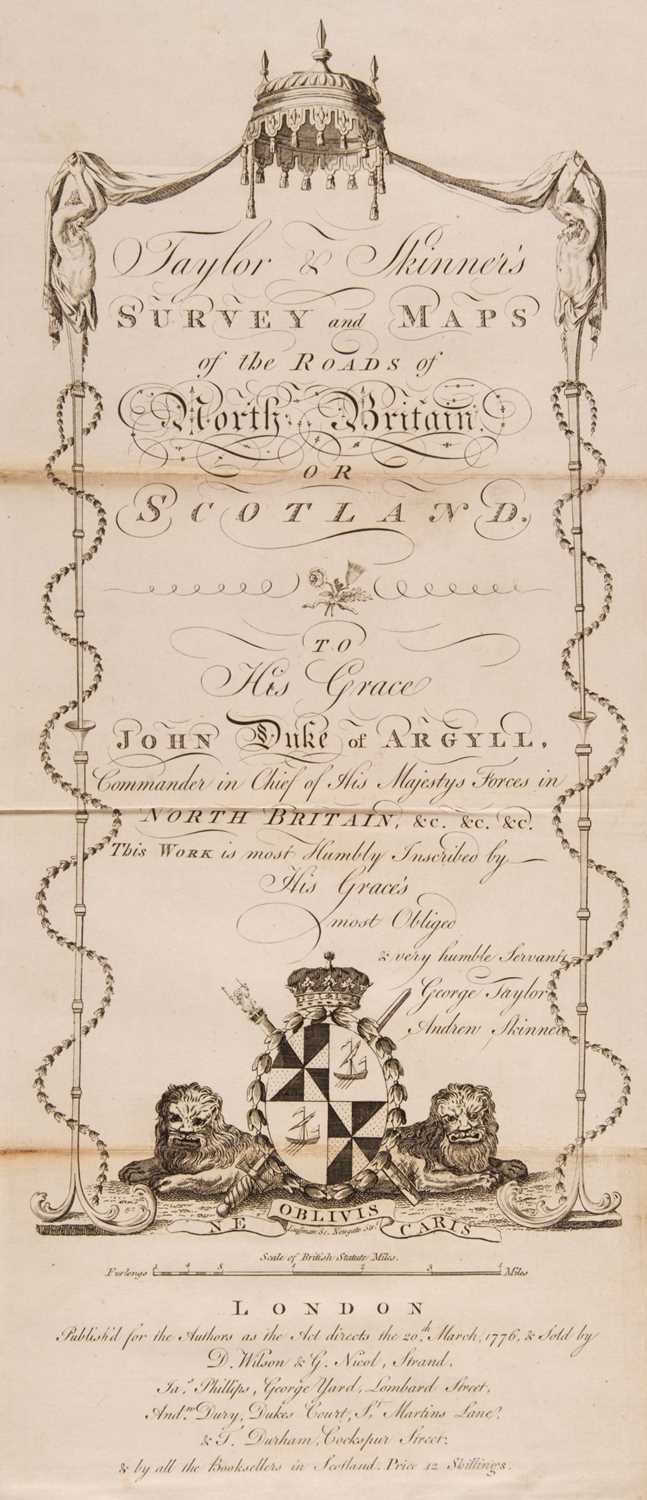 Taylor & Skinner's
SURVEY and MAPS
of the ROADS of
North Britain
OR
SCOTLAND.
TO
His Grace
JOHN Duke of ARGYLL,
Commander in Chief of His Majestys Forces in
NORTH BRITAIN, &c. &c. &c.
This WORK is most Humbly Inscribed by
His Grace's
most Obliged
& very humble Servants
George Taylor
Andrew Skinner
NE OBLIVISCARIS
Newgate Str.
Scale of British Statute Miles.
Furlongs 4 8 1 2 3 4 Miles
LONDON
Publish'd for the Authors as the Act directs the 20th March, 1776, & Sold by
D. Wilson & G. Nicol, Strand,
Jas. Phillips, George Yard, Lombard Street,
Andw. Dury, Dukes Court, St. Martins Lane,
& T. Durham, Cockspur Street;
& by all the Booksellers in Scotland. Price 12 Shillings.